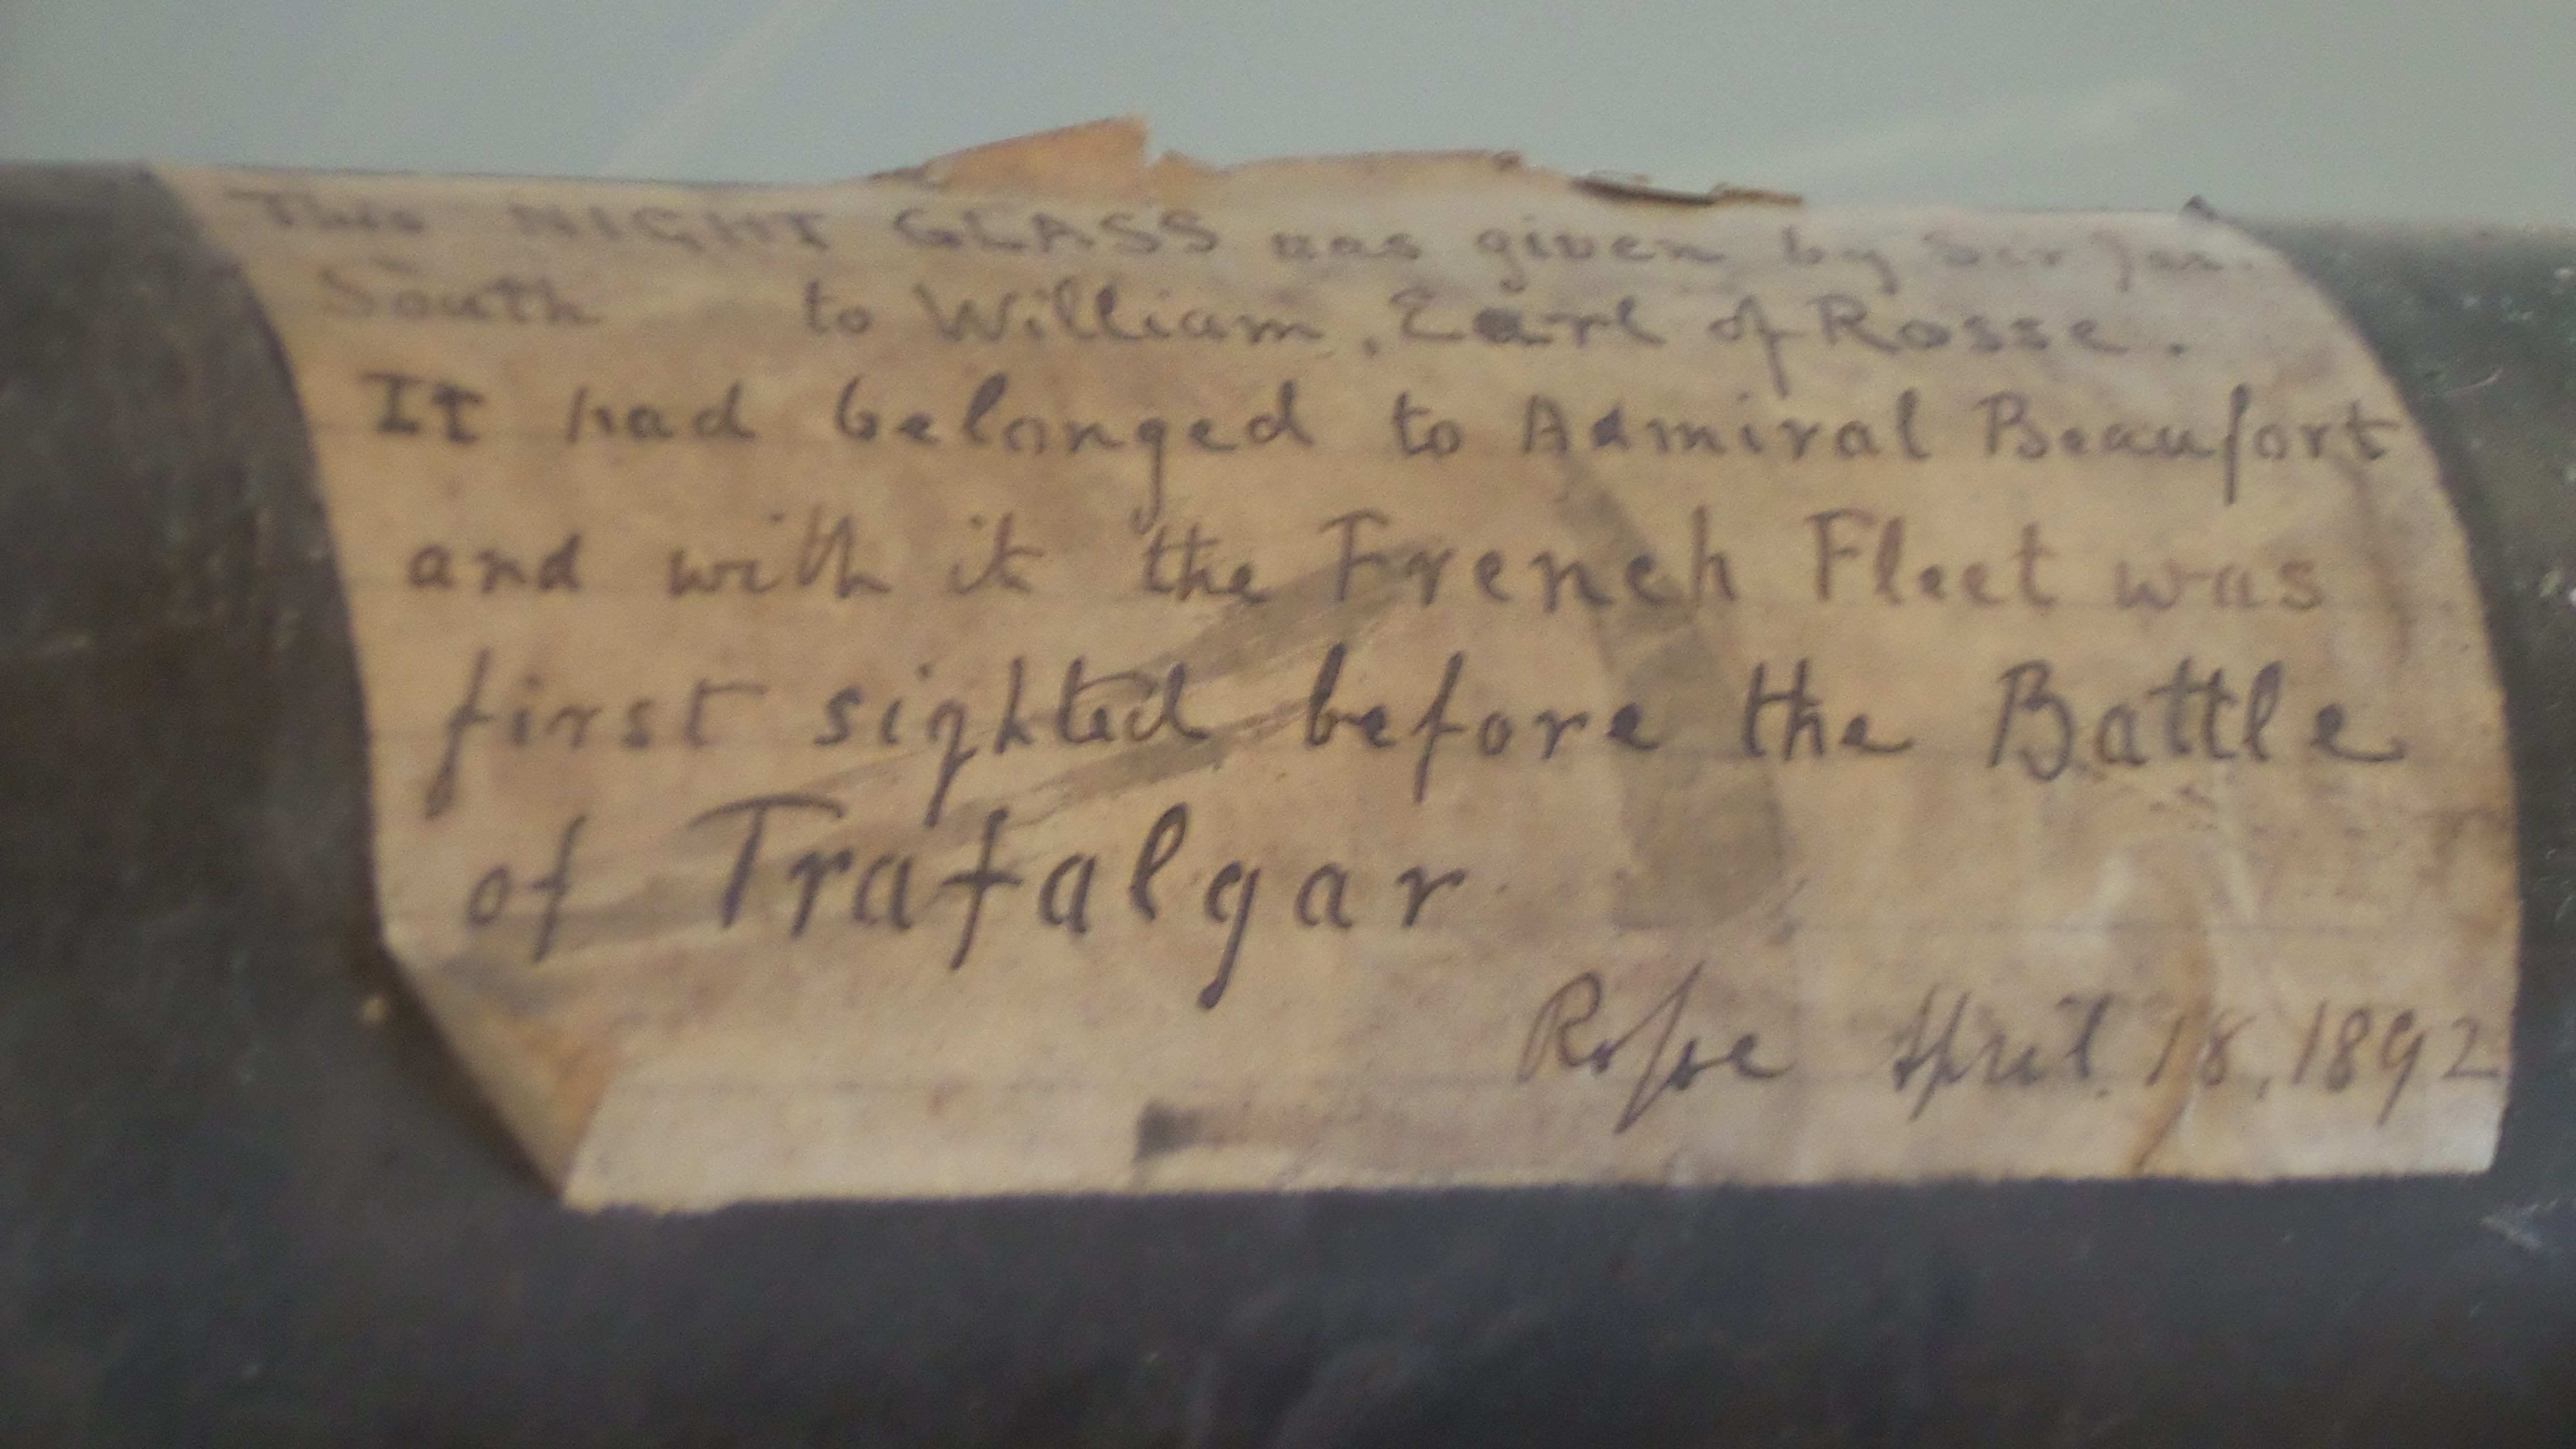 This NIGHT GLASS was given by Sir Jas.
South to William, Earl of Rosse.
It had belonged to Admiral Beaufort
and with it the French Fleet was
first sighted before the Battle
of Trafalgar
Rosse April 18, 1892